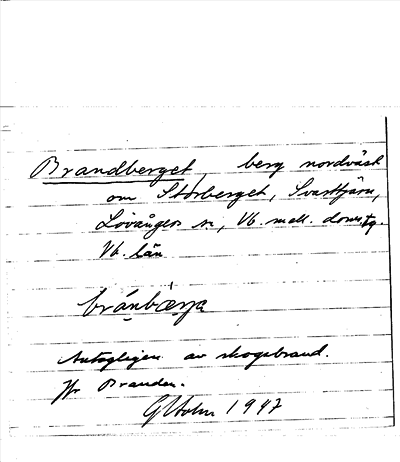 Brandberget, berg nordväst
om Storberget, Svarttjärn,
Lövångers sn, Vb. mell. doms.
Vb. län
Antagligen av skogsbrand.
Jfr Branden.
G Holm 1947